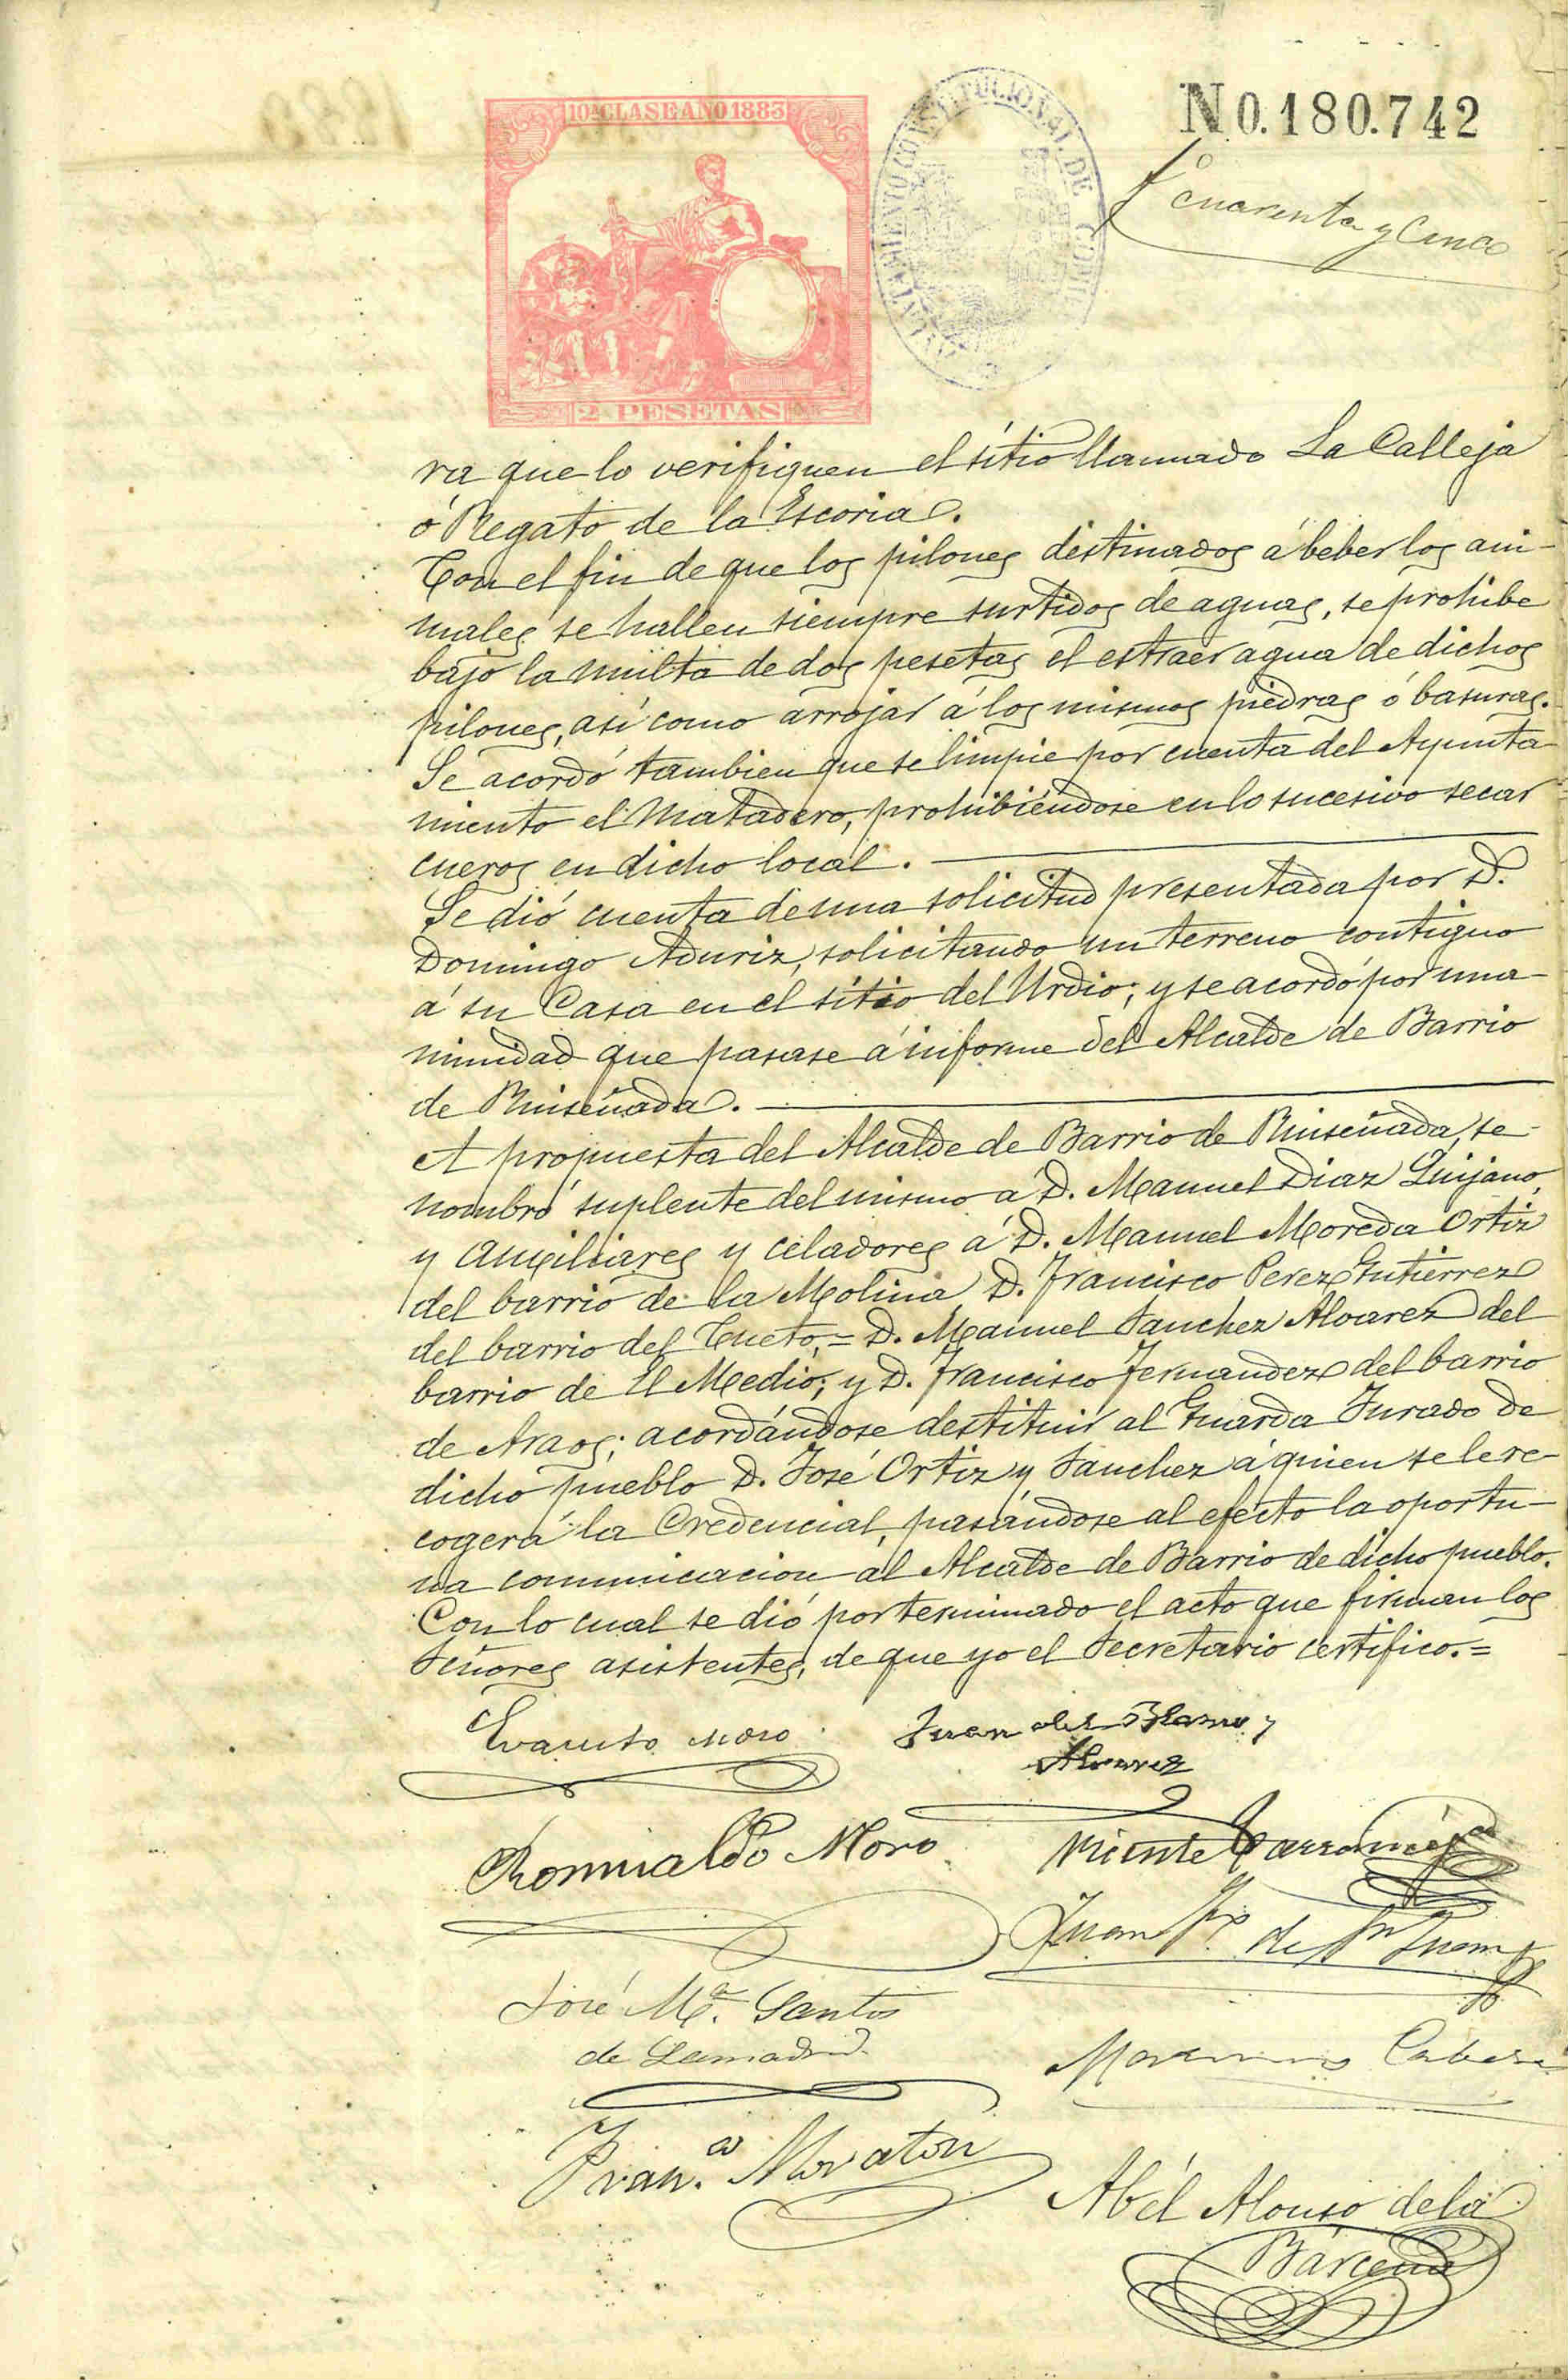 10ª CLASE AÑO 1883
2 PESETAS
AYUNTAMIENTO CONSTITUCIONAL DE COMI
N0.180.742
fº cuarenta y Cinco
ra que lo verifiquen el sitio llamado La Calleja
ó Regato de la Escoria.
Con el fin de que los pilones destinados á beber los ani-
males se hallen siempre surtidos de aguas, se prohibe
bajo la multa de dos pesetas el estraer agua de dichos
pilones, así como arrojar á los mismos piedras ó basuras.
Se acordó tambien que se limpie por cuenta del Ayunta-
miento el Matadero, prohibiéndose en lo sucesivo secar
cueros en dicho local.
Se dió cuenta de una solicitud presentada por D.
Domingo Aduriz, solicitando un terreno contiguo
á su Casa en el sitio del Urdio; y se acordó por una-
nimidad que pasase á informe del Alcalde de Barrio
de Ruiseñada.
A propuesta del Alcalde de Barrio de Ruiseñada, se
nombró suplente del mismo a D. Manuel Diaz Quijano,
y Auxiliares y celadores á D. Manuel Moreda Ortiz
del barrio de la Molina, D. Francisco Perez Gutierrez
del barrio del Cueto, = D. Manuel Sanchez Alvarez del
barrio de El Medio; y D. Francisco Fernandez del barrio
de Araos; acordándose destituir al Guarda Jurado de
dicho pueblo D. José Ortiz y Sanchez á quien se le re-
cogerá la Credencial, pasándose al efecto la oportu-
na comunicacion al Alcalde de Barrio de dicho pueblo.
Con lo cual se dió por terminado el acto que firman los
Señores asistentes, de que yo el Secretario certifico.=
Evaristo Moro
Juan del Blanco y
Alvarez
Romualdo Moro
Vicente Carranceja
Juan Fz de Sn Juan
José Mª Santos
de Lamadrid
Cabeza
Franco Moraton
Abél Alonso de la
Bárcena